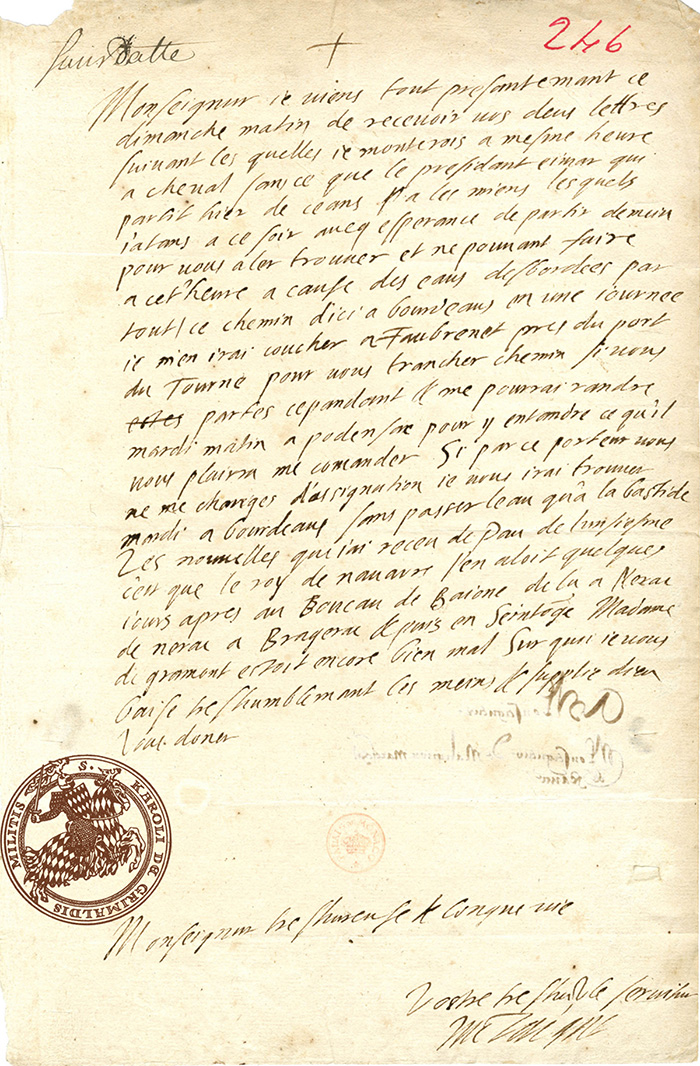 Sans datte
246
Monseignur ie viens tout presantemant ce
dimanche matin de recevoir vos deus lettres
suivant les quelles ie monterois a mesme heure
a cheval sans ce que le presidant eimar qui
partit hier de ceans a les miens lesquels
i'atans a ce soir avecq esperance de partir demein
pour vous aler trouver et ne pouvant faire
a cet'heure a cause des eaus desbordees par
tout ce chemin d'ici a bourdeaus en une iournee
ie m'en irai coucher a Faubrenet pres du port
du Tourne pour vous trancher chemin si vous
partes cependant & me pourrai randre
mardi matin a podensac pour y entandre ce qu'il
vous plairra me comander Si par ce porteur vous
ne me changes d'assignation ie vous irai trouver
mardi a bourdeaus sans passer l'eau qu'a la bastide
Les nouvelles qui i'ai receu de Pau de l'unsiesme
c'est que le roy de navarre s'en aloit quelques
iours apres au Boucau de Baione de la a Nerac
de nerac a Bragerac & puis en Seintoge Madame
de gramont estoit encore bien mal Sur quoi ie vous
baise treshumblemant les meins & supplie dieu
vous doner
Monseignur
S. KAROLI DE GRIMALDIS MILITIS
Monseignur tresheureuse & longue vie
Vostre treshumble serviteur
Montaigne